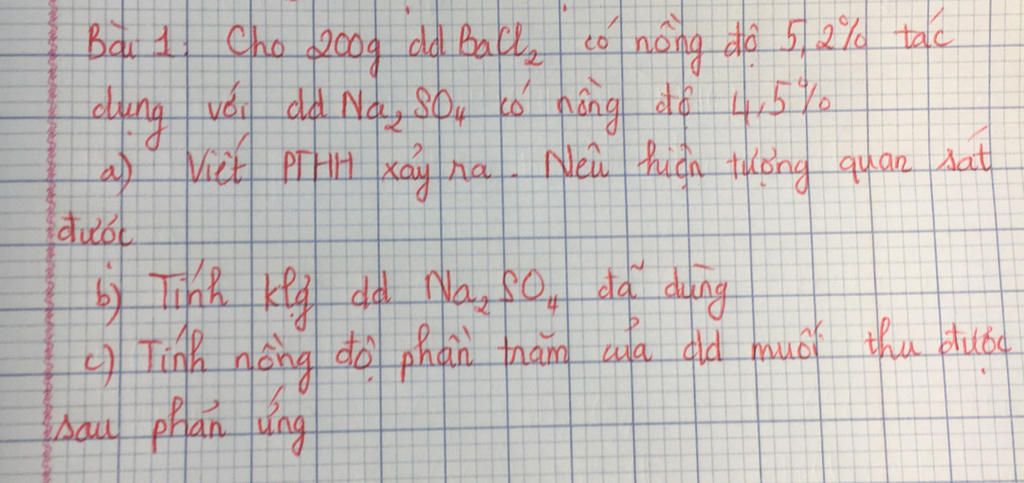 Bài 1: Cho 200g dd BaCl₂ có nồng độ 5,2% tác
dụng với dd Na₂SO₄ có nồng độ 4,5%
a) Viết PTHH xảy ra. Nêu hiện tượng quan sát
được
b) Tính klg dd Na₂SO₄ đã dùng
c) Tính nồng độ phần trăm của dd muối thu được
sau phản ứng